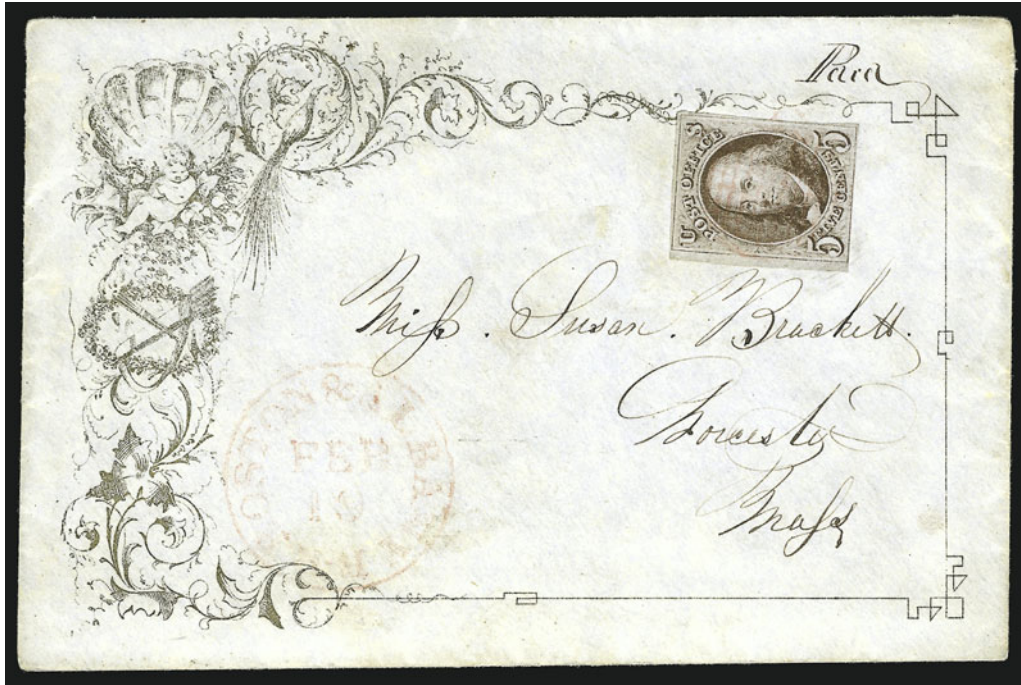 Paid
5 5
POST OFFICE
U
FIVE CENTS
Miss. Susan. Brackett.
Worcester
Mass
BOSTON & ALBANY
FEB
10